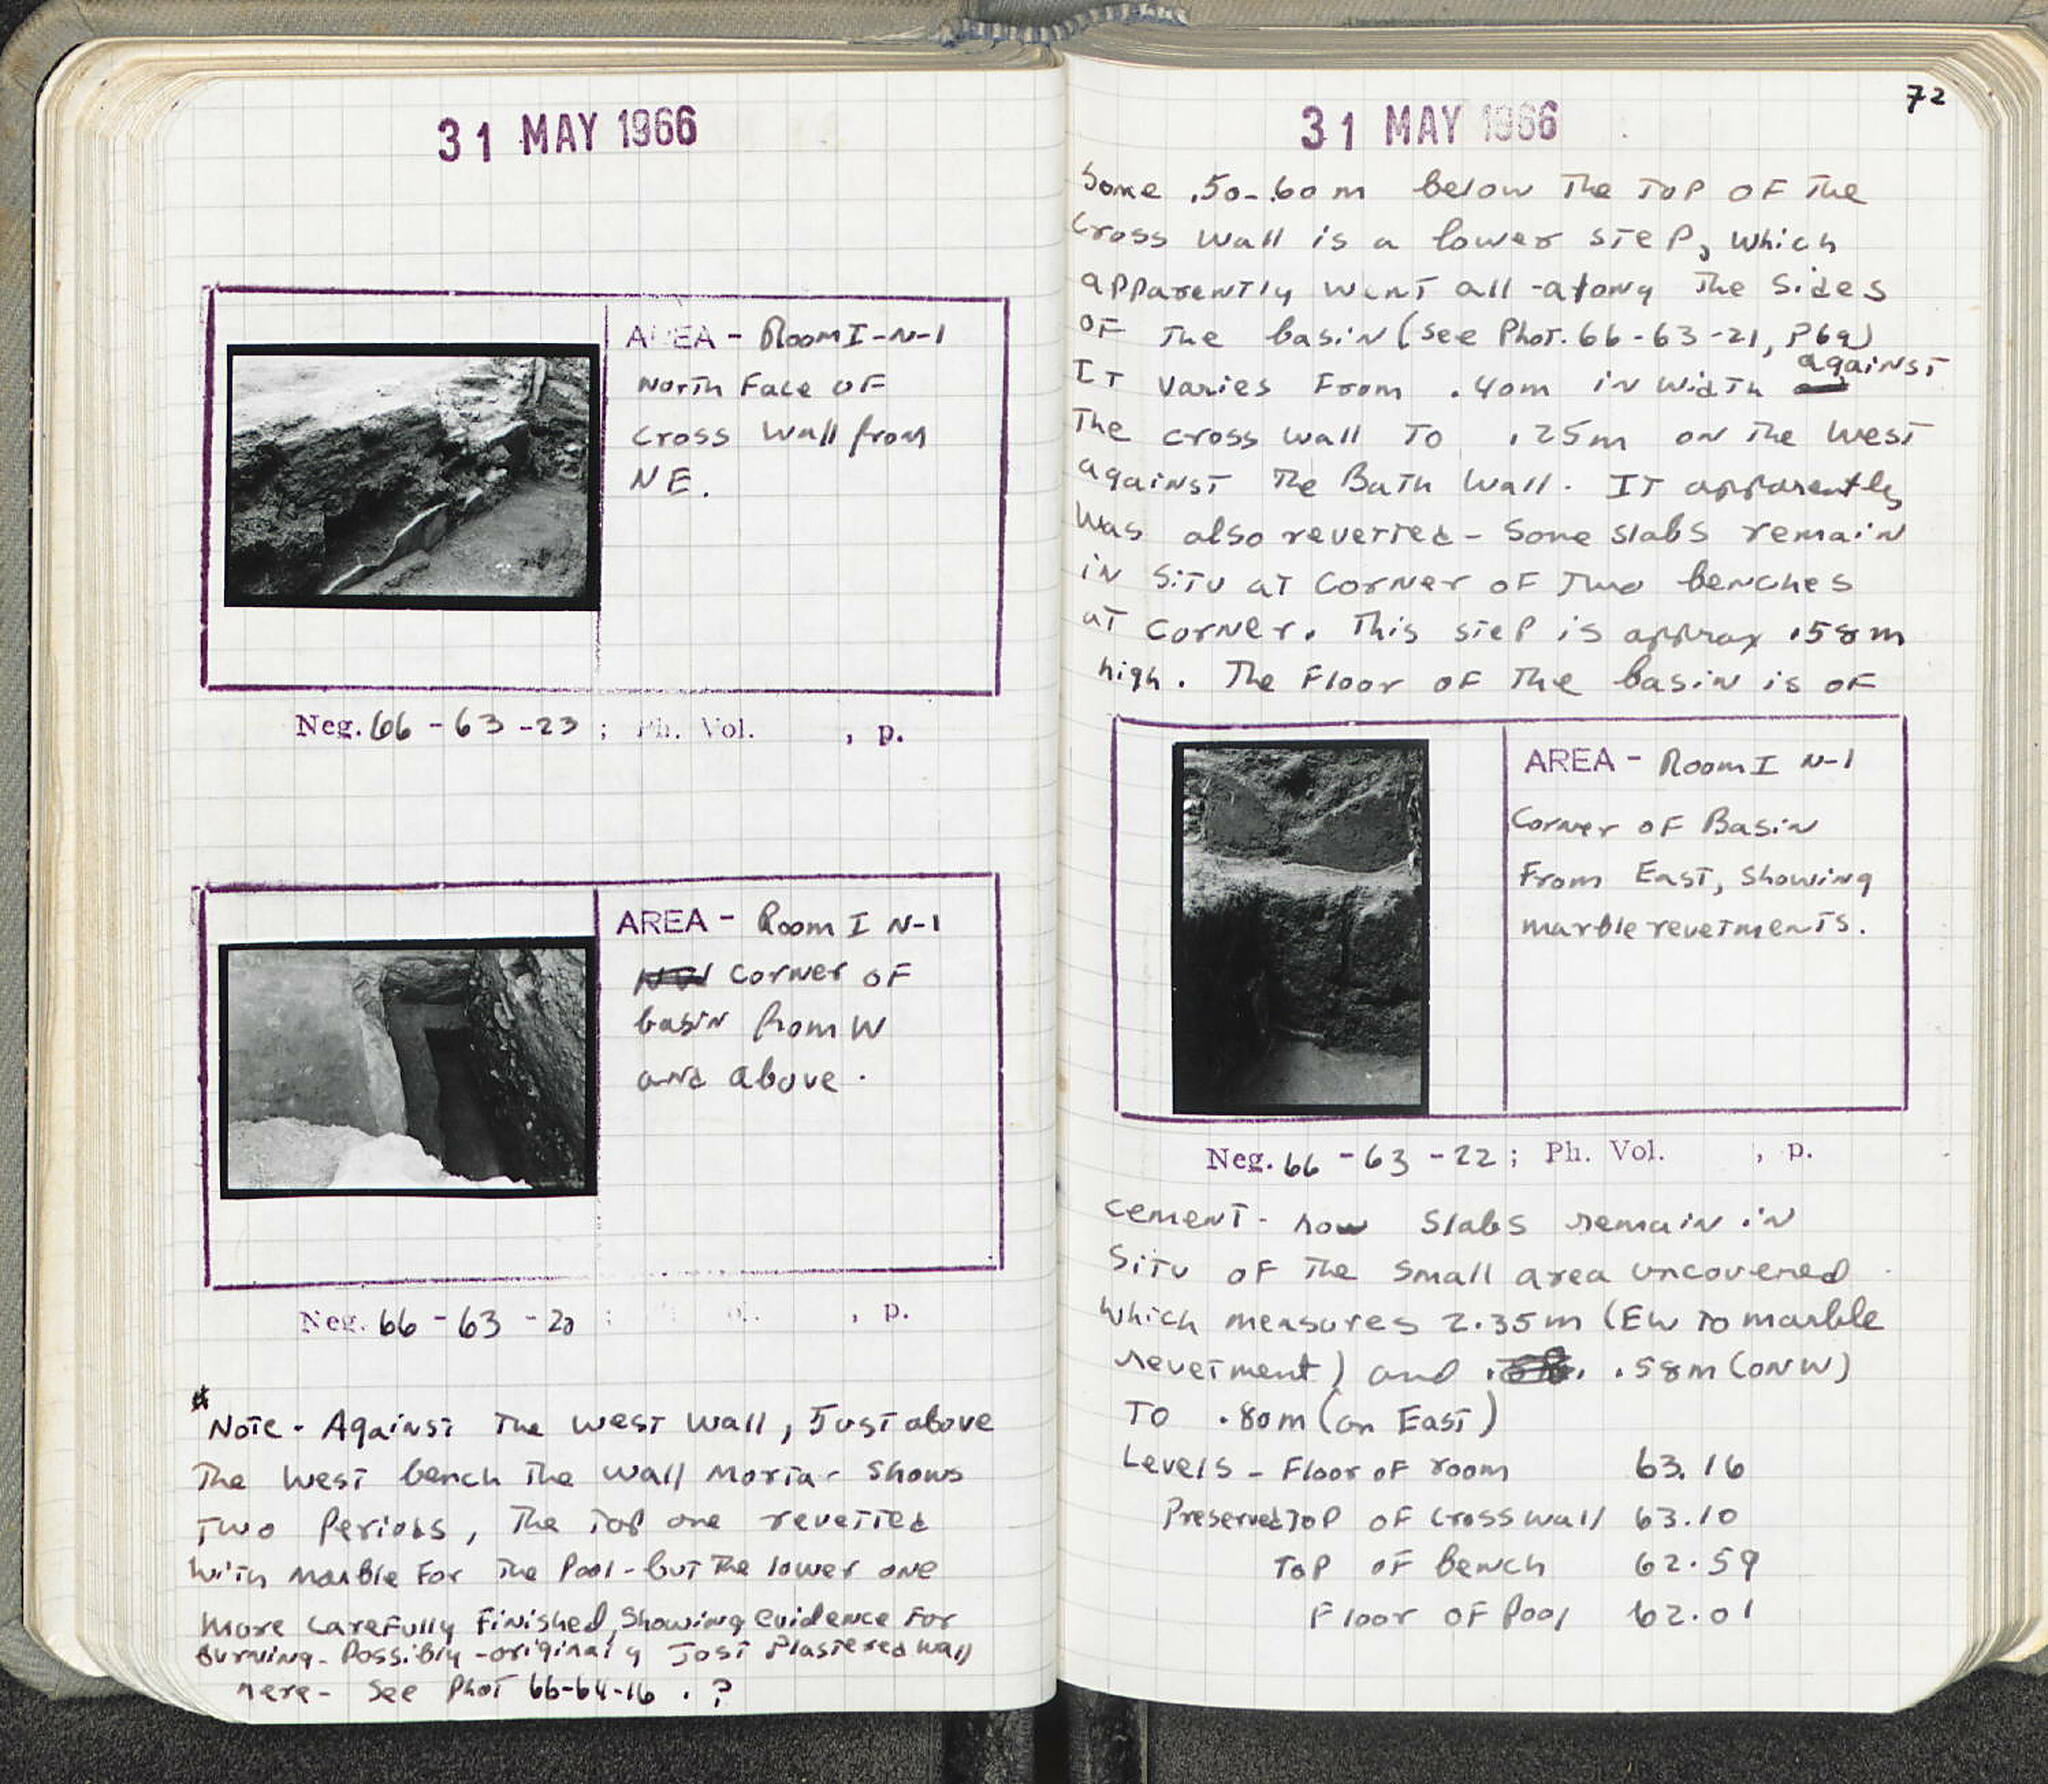 31 MAY 1966
AREA - Room I-N-1
North Face OF
cross wall from
NE.
Neg. 66 - 63 - 23 ; Ph. Vol. , p.
AREA - Room I N-1
NW corner OF
basin from W
and above.
Neg. 66 - 63 - 20 : , p.
* Note - Against The west wall, Just above
The West bench The wall mortar shows
Two Periods, The Top one revetted
With marble For The Pool - but The lower one
more carefully finished, showing evidence For
burning - Possibly - originaly Just Plastered wall
here - See Phot 66-64-16 . ?
72
31 MAY 1966
Some .50-.60 m below The Top OF The
Cross Wall is a lower step, which
apparently went all -along The sides
OF The basin (see Phot. 66-63-21, P69)
IT varies From .40m in width against
The cross wall To .25m on The West
against The Bath Wall. IT apparently
Was also revetted - Some slabs remain
in situ at corner of Two benches
at corner. This step is approx .58m
high. The Floor OF The basin is OF
AREA - Room I N-1
Corner OF Basin
From East, showing
marble revetments.
Neg. 66 - 63 - 22 ; Ph. Vol. , p.
cement - now slabs remain in
Situ OF The small area uncovered
Which measures 2.35m (EW To marble
revetment) and .58m (on W)
To .80m (on East)
Levels - Floor of room 63.16
Preserved Top OF Cross wall 63.10
Top OF bench 62.59
Floor OF Pool 62.01